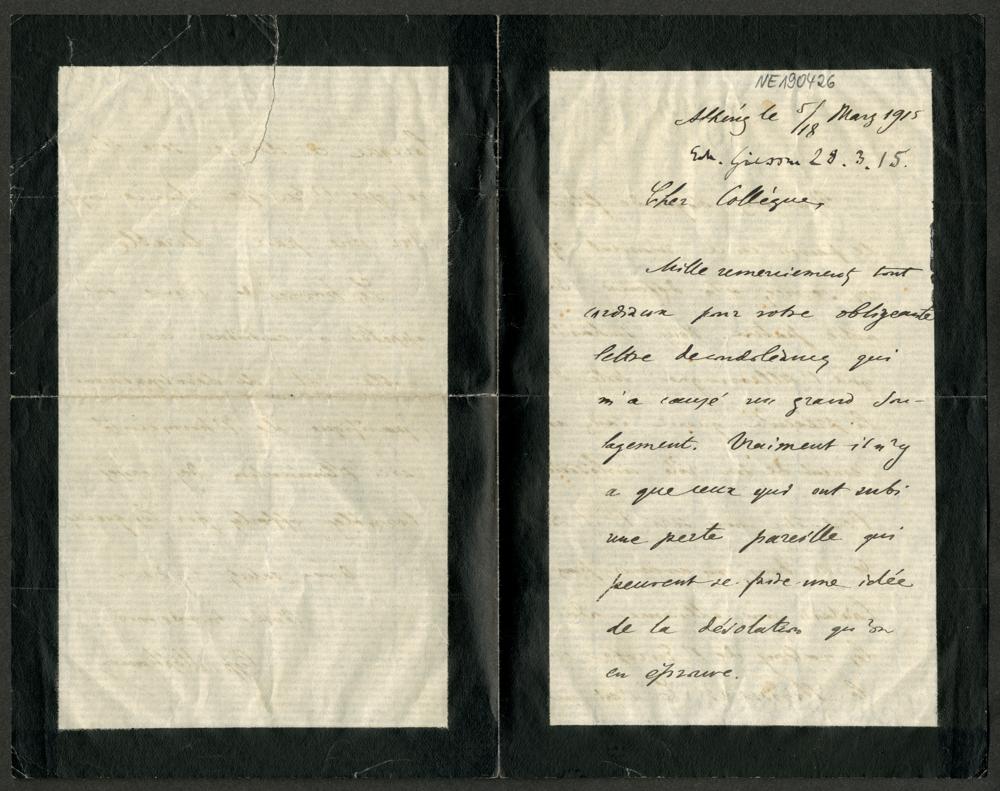 NE190426
Athènes le 5/18 Mars 1915
Erh. Giessen 28.3.15.
Cher Collègue,
Mille remerciements tout
cordiaux pour votre obligeante
lettre de condoléances qui
m'a causé un grand sou-
lagement. Vraiment il n'y
a que ceux qui ont subi
une perte pareille qui
peuvent se faire une idée
de la désolation qu'on
en éprouve.